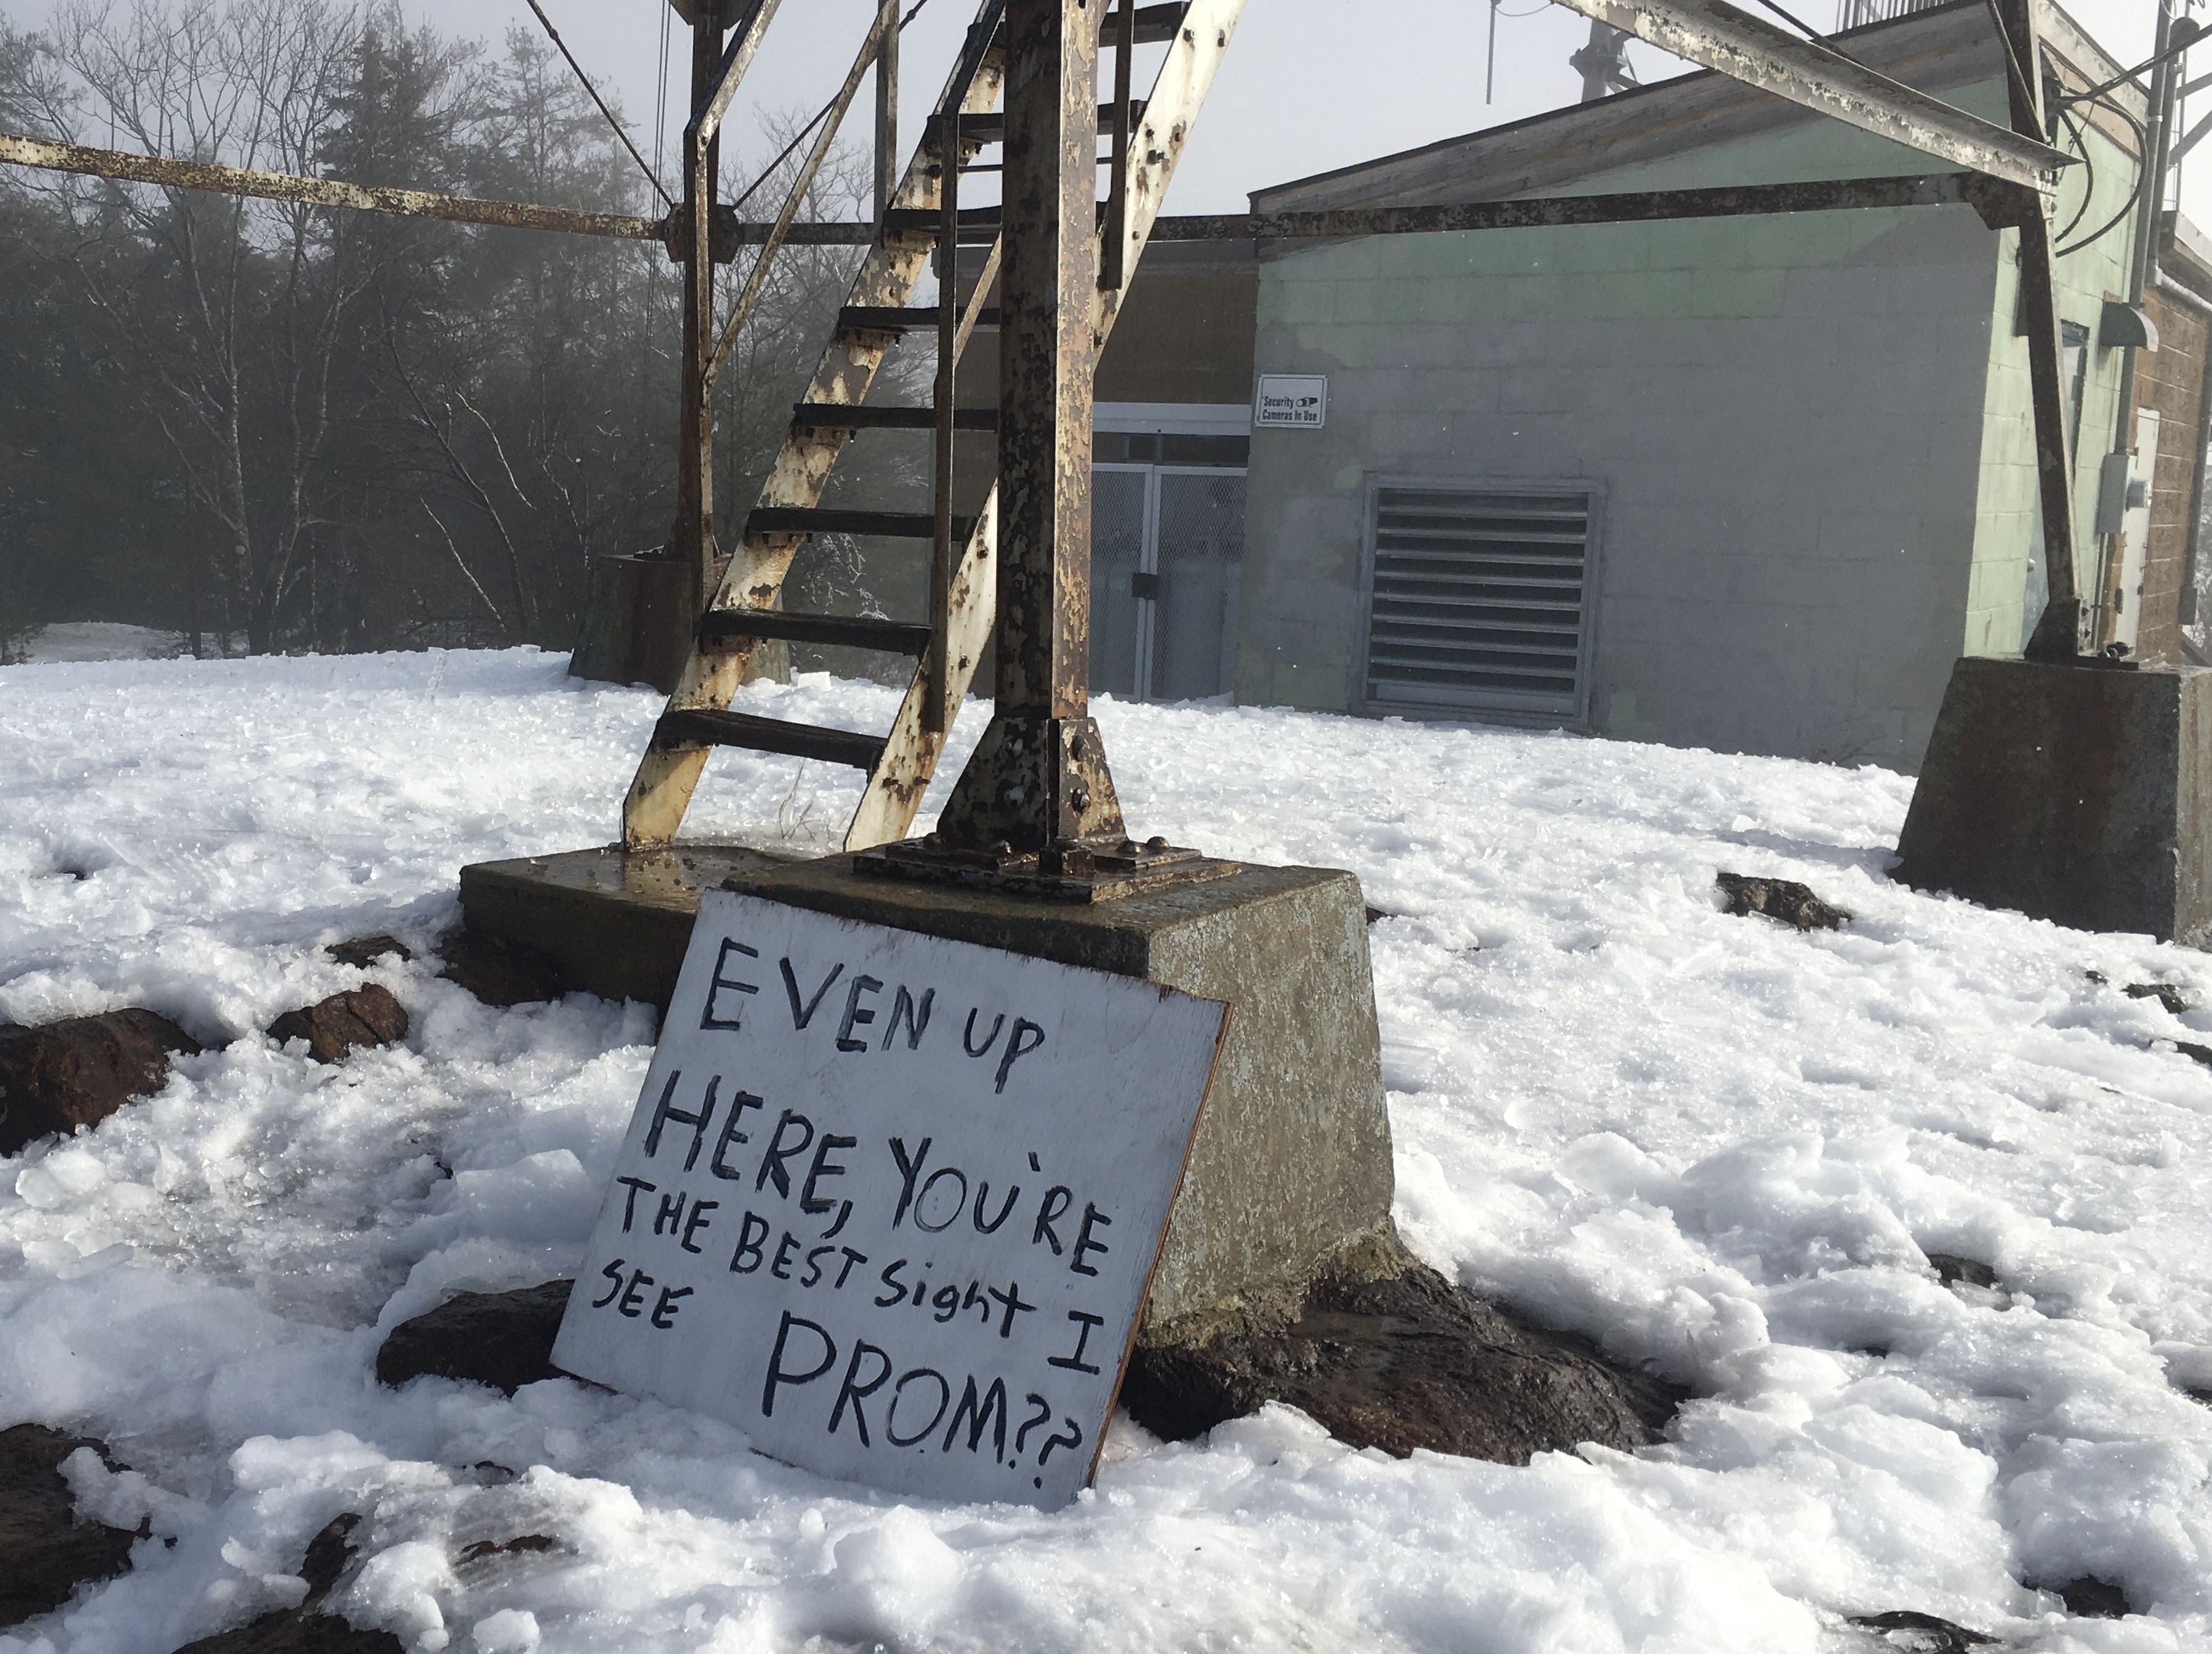 Security
Cameras In Use
EVEN UP
HERE, YOU'RE
THE BEST Sight I
SEE PROM??